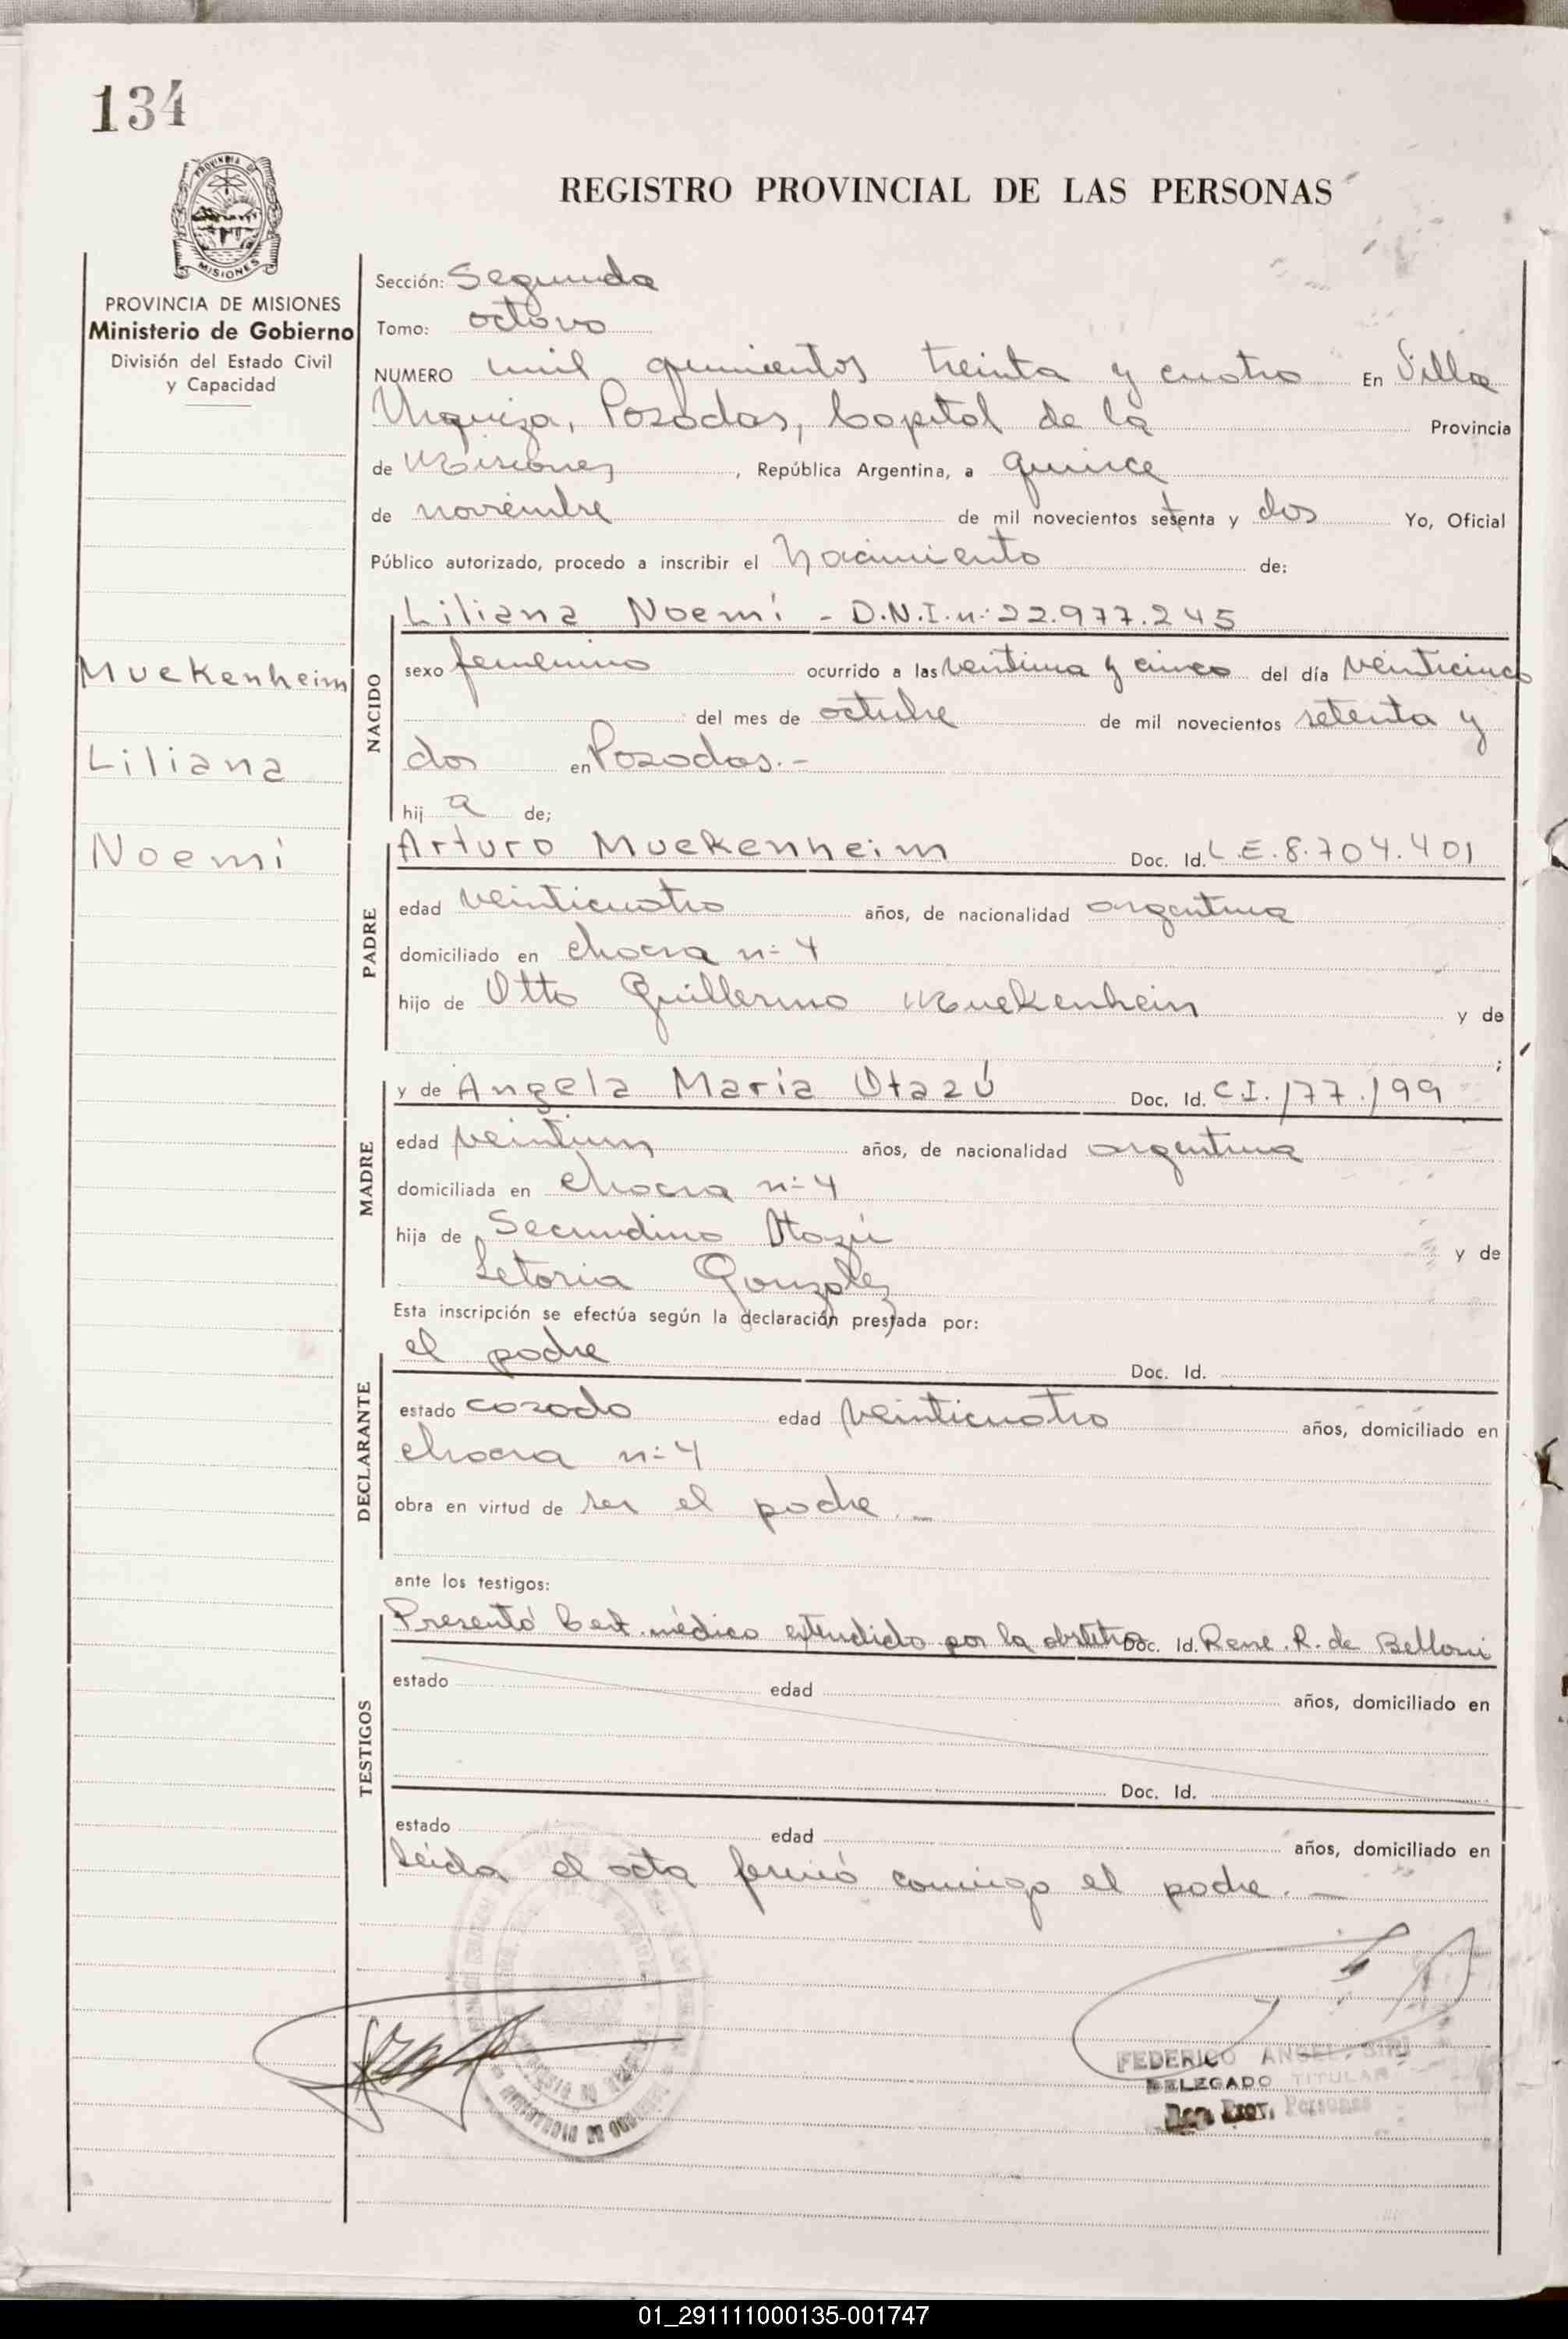 134
PROVINCIA DE MISIONES
REGISTRO PROVINCIAL DE LAS PERSONAS
PROVINCIA DE MISIONES
Ministerio de Gobierno
División del Estado Civil
y Capacidad
Sección: Segunda
Tomo: octavo
NUMERO mil quinientos treinta y cuatro En Villa
Urquiza, Posadas, Capital de la Provincia
de Misiones, República Argentina, a quince
de noviembre de mil novecientos setenta y dos Yo, Oficial
Público autorizado, procedo a inscribir el Nacimiento de:
Muekenheim
Liliana
Noemí
NACIDO
Liliana Noemí - D.N.I. n: 22.977.245
sexo femenino ocurrido a las veintiuna y cinco del día veinticinco
del mes de octubre de mil novecientos setenta y
dos en Posadas.-
hij a de;
PADRE
Arturo Muekenheim Doc. Id. L.E. 8.704.401
edad veinticuatro años, de nacionalidad argentina
domiciliado en chacra n: 4
hijo de Otto Guillermo Muekenhein y de
;
MADRE
y de Angela María Otazú Doc. Id. C.I. 177.199
edad veintiun años, de nacionalidad argentina
domiciliada en chacra n: 4
hija de Secundino Otazú y de
Letoria Gonzalez
Esta inscripción se efectúa según la declaración prestada por:
DECLARANTE
el padre Doc. Id.
estado casado edad veinticuatro años, domiciliado en
chacra n: 4
obra en virtud de ser el padre.-
ante los testigos:
TESTIGOS
Presentó Cert. médico extendido por la obstetra Doc. Id. Rene. R. de Belloni
estado edad años, domiciliado en
Doc. Id.
estado edad años, domiciliado en
Leida el acta firmó conmigo el padre.-
FEDERICO ANGEL
DELEGADO TITULAR
Personas
01_291111000135-001747